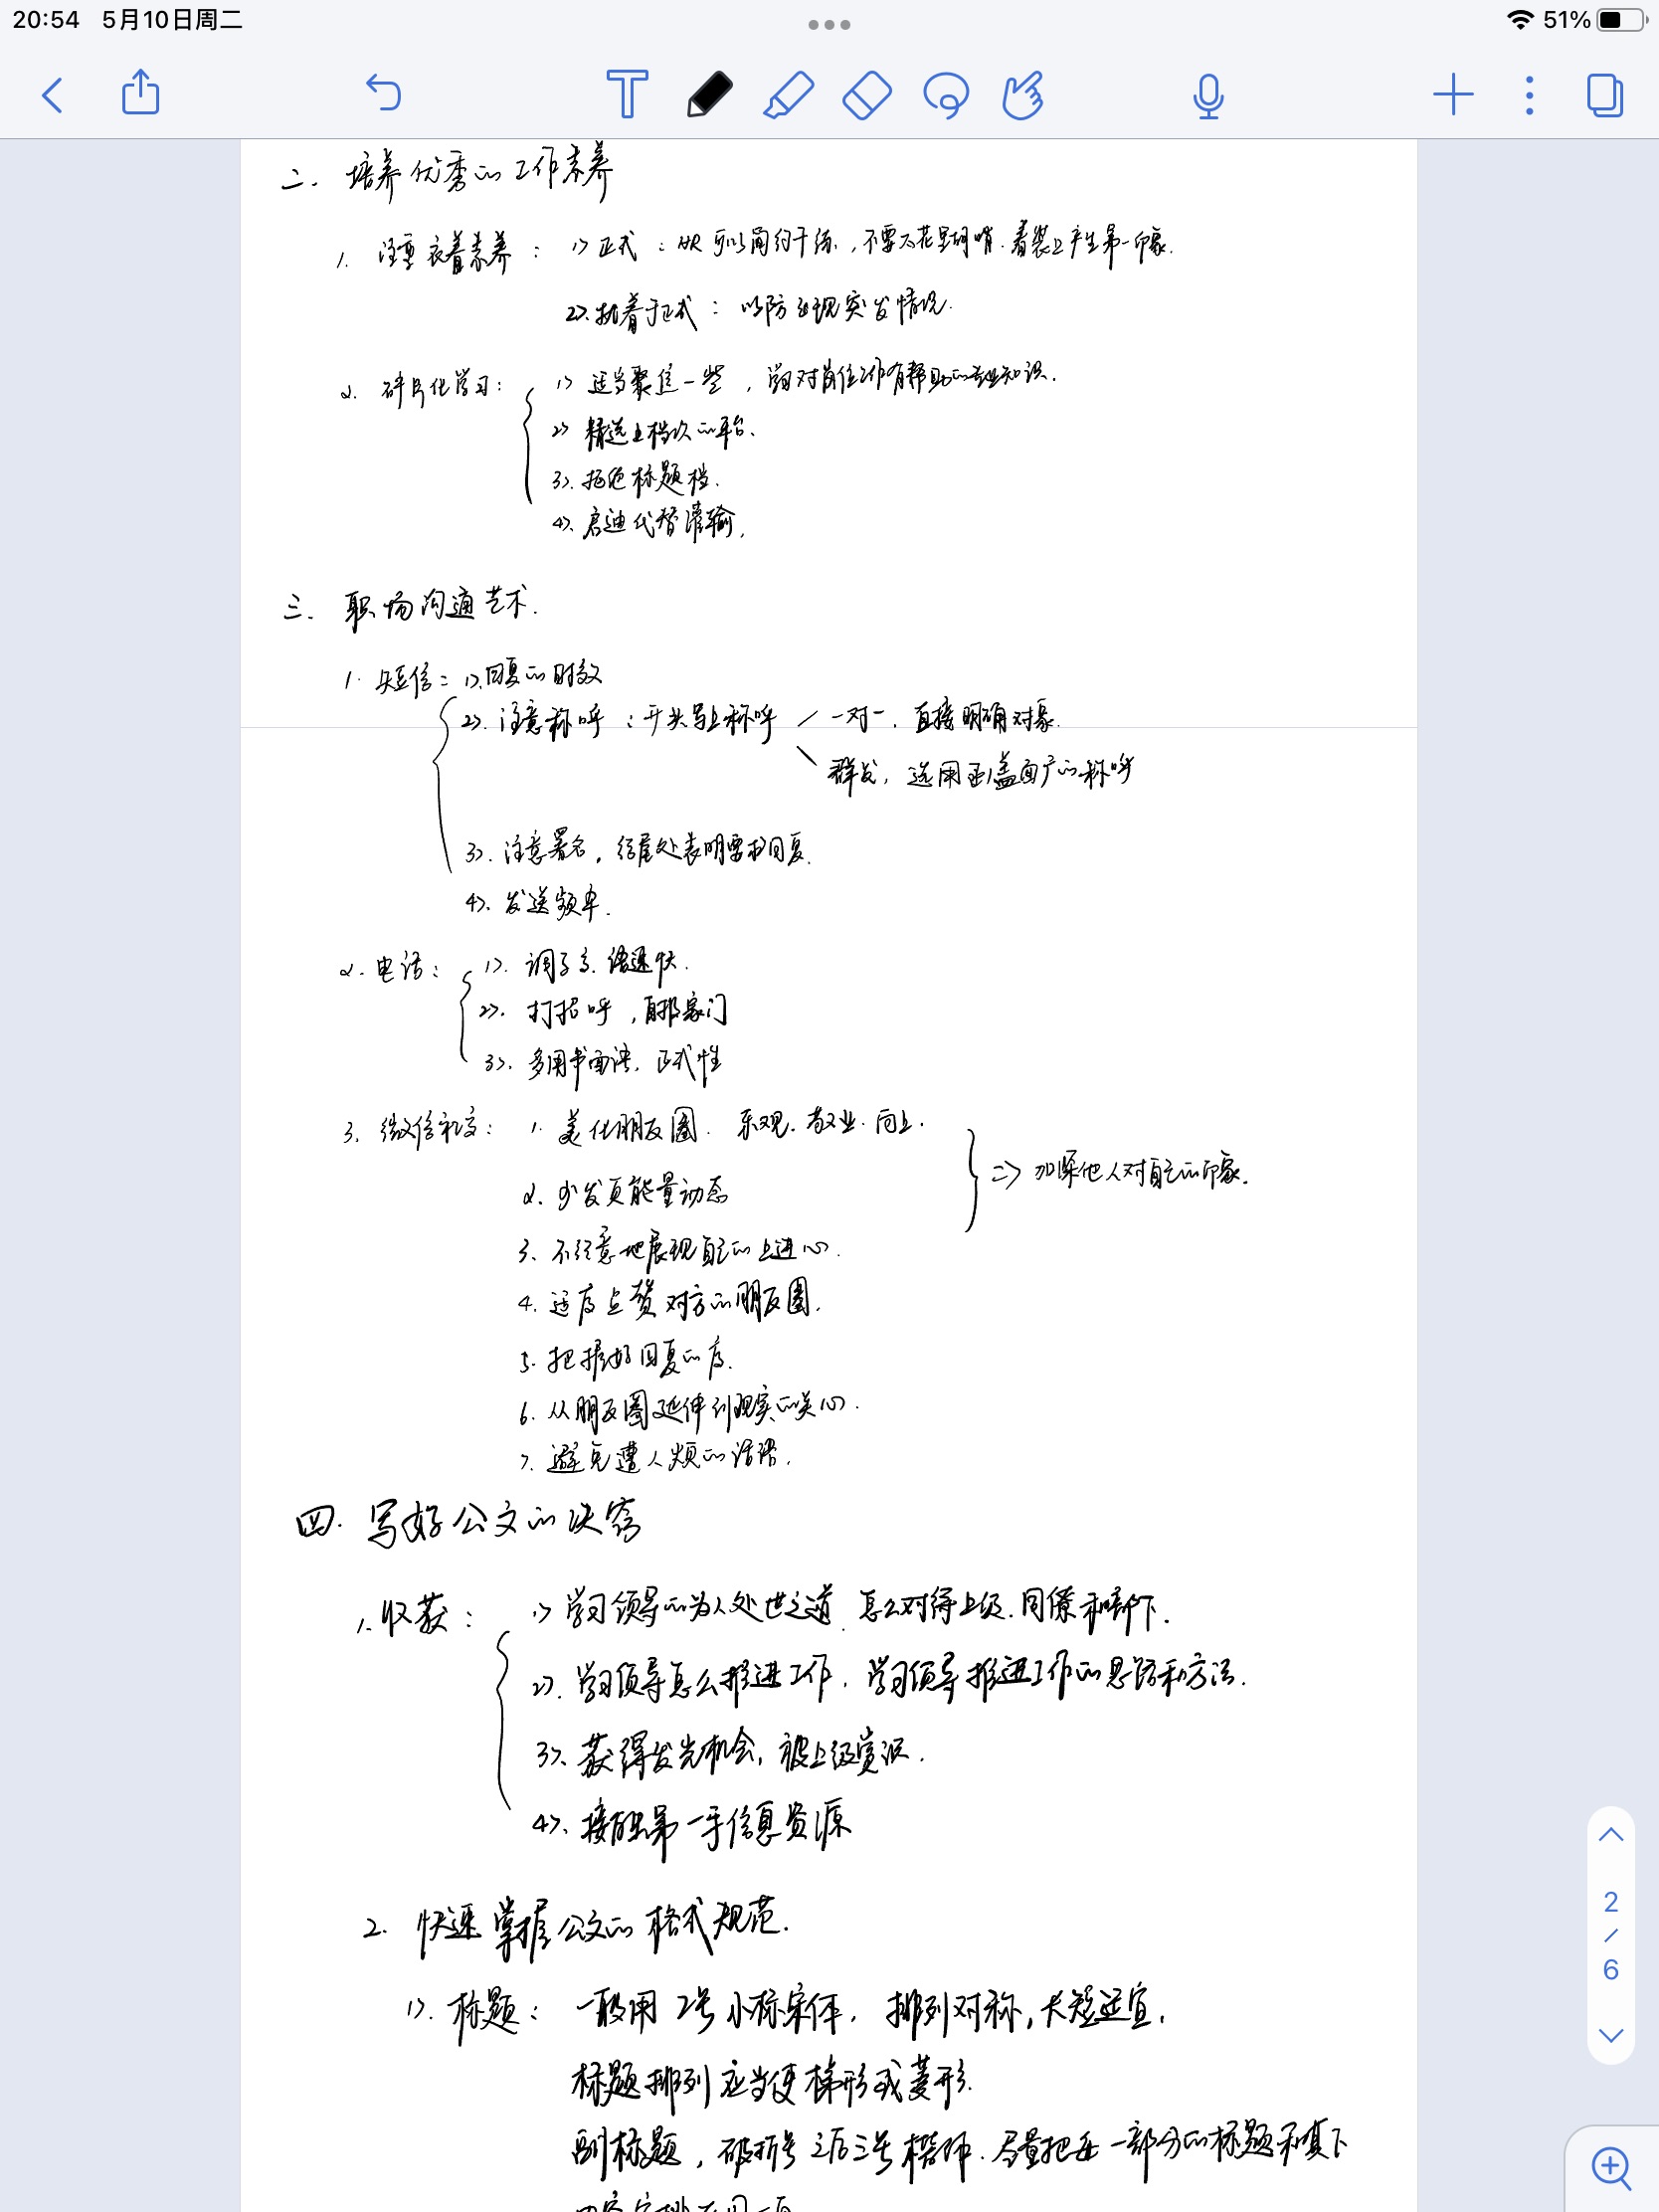 20:54 5月10日周二
51%
二. 培养优秀的工作素养
1. 注重衣着素养： 1> 正式：以简约干练，不要太花里胡哨. 着装上产生第一印象.
2>. 执着于正式： 以防出现突发情况.
2. 碎片化学习： 1> 适当聚焦一些，学习对岗位工作有帮助的专业知识.
2> 精选上档次的平台.
3>. 拒绝标题档.
4>. 启迪代替灌输.
三. 职场沟通艺术.
1. 短信： 1>. 回复的时效
2>. 注意称呼：开头写上称呼 一对一. 直接明确对象.
群发, 选用涵盖面广的称呼
3>. 注意署名, 结尾处表明需求回复.
4>. 发送频率.
2. 电话： 1>. 调子高. 语速快.
2>. 打招呼，自报家门
3>. 多用书面语. 正式性
3. 微信社交： 1. 美化朋友圈. 乐观. 敬业. 向上.
2. 少发负能量动态
=> 加深他人对自己的印象.
3. 不经意地展现自己的上进心.
4. 适度点赞对方的朋友圈.
5. 把握好回复的度.
6. 从朋友圈延伸到现实的关心.
7. 避免遭人烦的话语.
四. 写好公文的诀窍
1. 收获： 1> 学习领导的为人处世之道. 怎么对待上级. 同僚和部下.
2>. 学习领导怎么推进工作. 学习领导推进工作的思路和方法.
3>. 获得发光机会, 被上级赏识.
4>. 接触第一手信息资源
2. 快速掌握公文的格式规范.
1>. 标题： 一般用2号小标宋体. 排列对称, 长短适宜.
标题排列应当使梯形或菱形.
副标题, 破折号之后三号楷体. 尽量把每一部分的标题和其下
内容安排在同一页
2
/
6